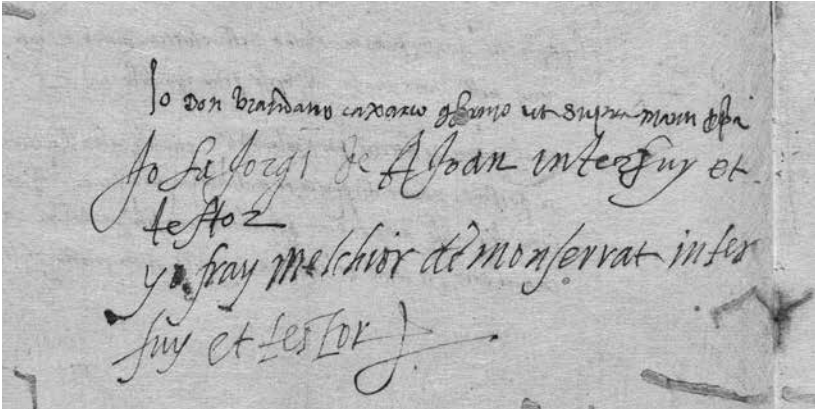 Io Don brandano caxario afermo ut supra manu ppa
Jo fra Jorgi de s Joan interfuy et
testor
yo fray Melchior de monserrat inter
fuy et testor